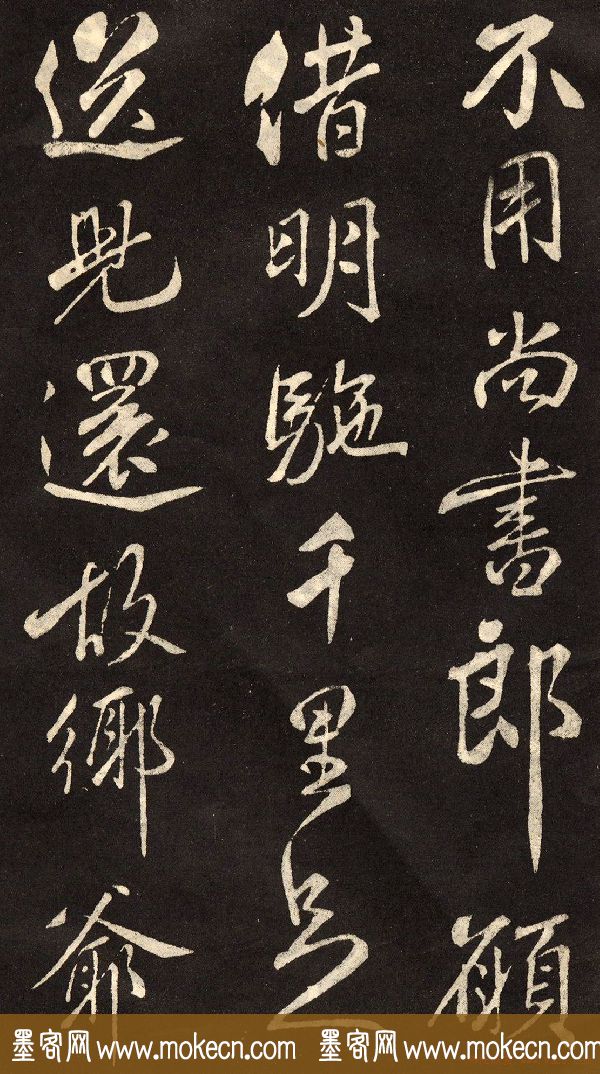 不用尚書郎願
借明駞千里足
送児還故鄉爺
墨客网 www.mokecn.com 墨客网 www.mokecn.com